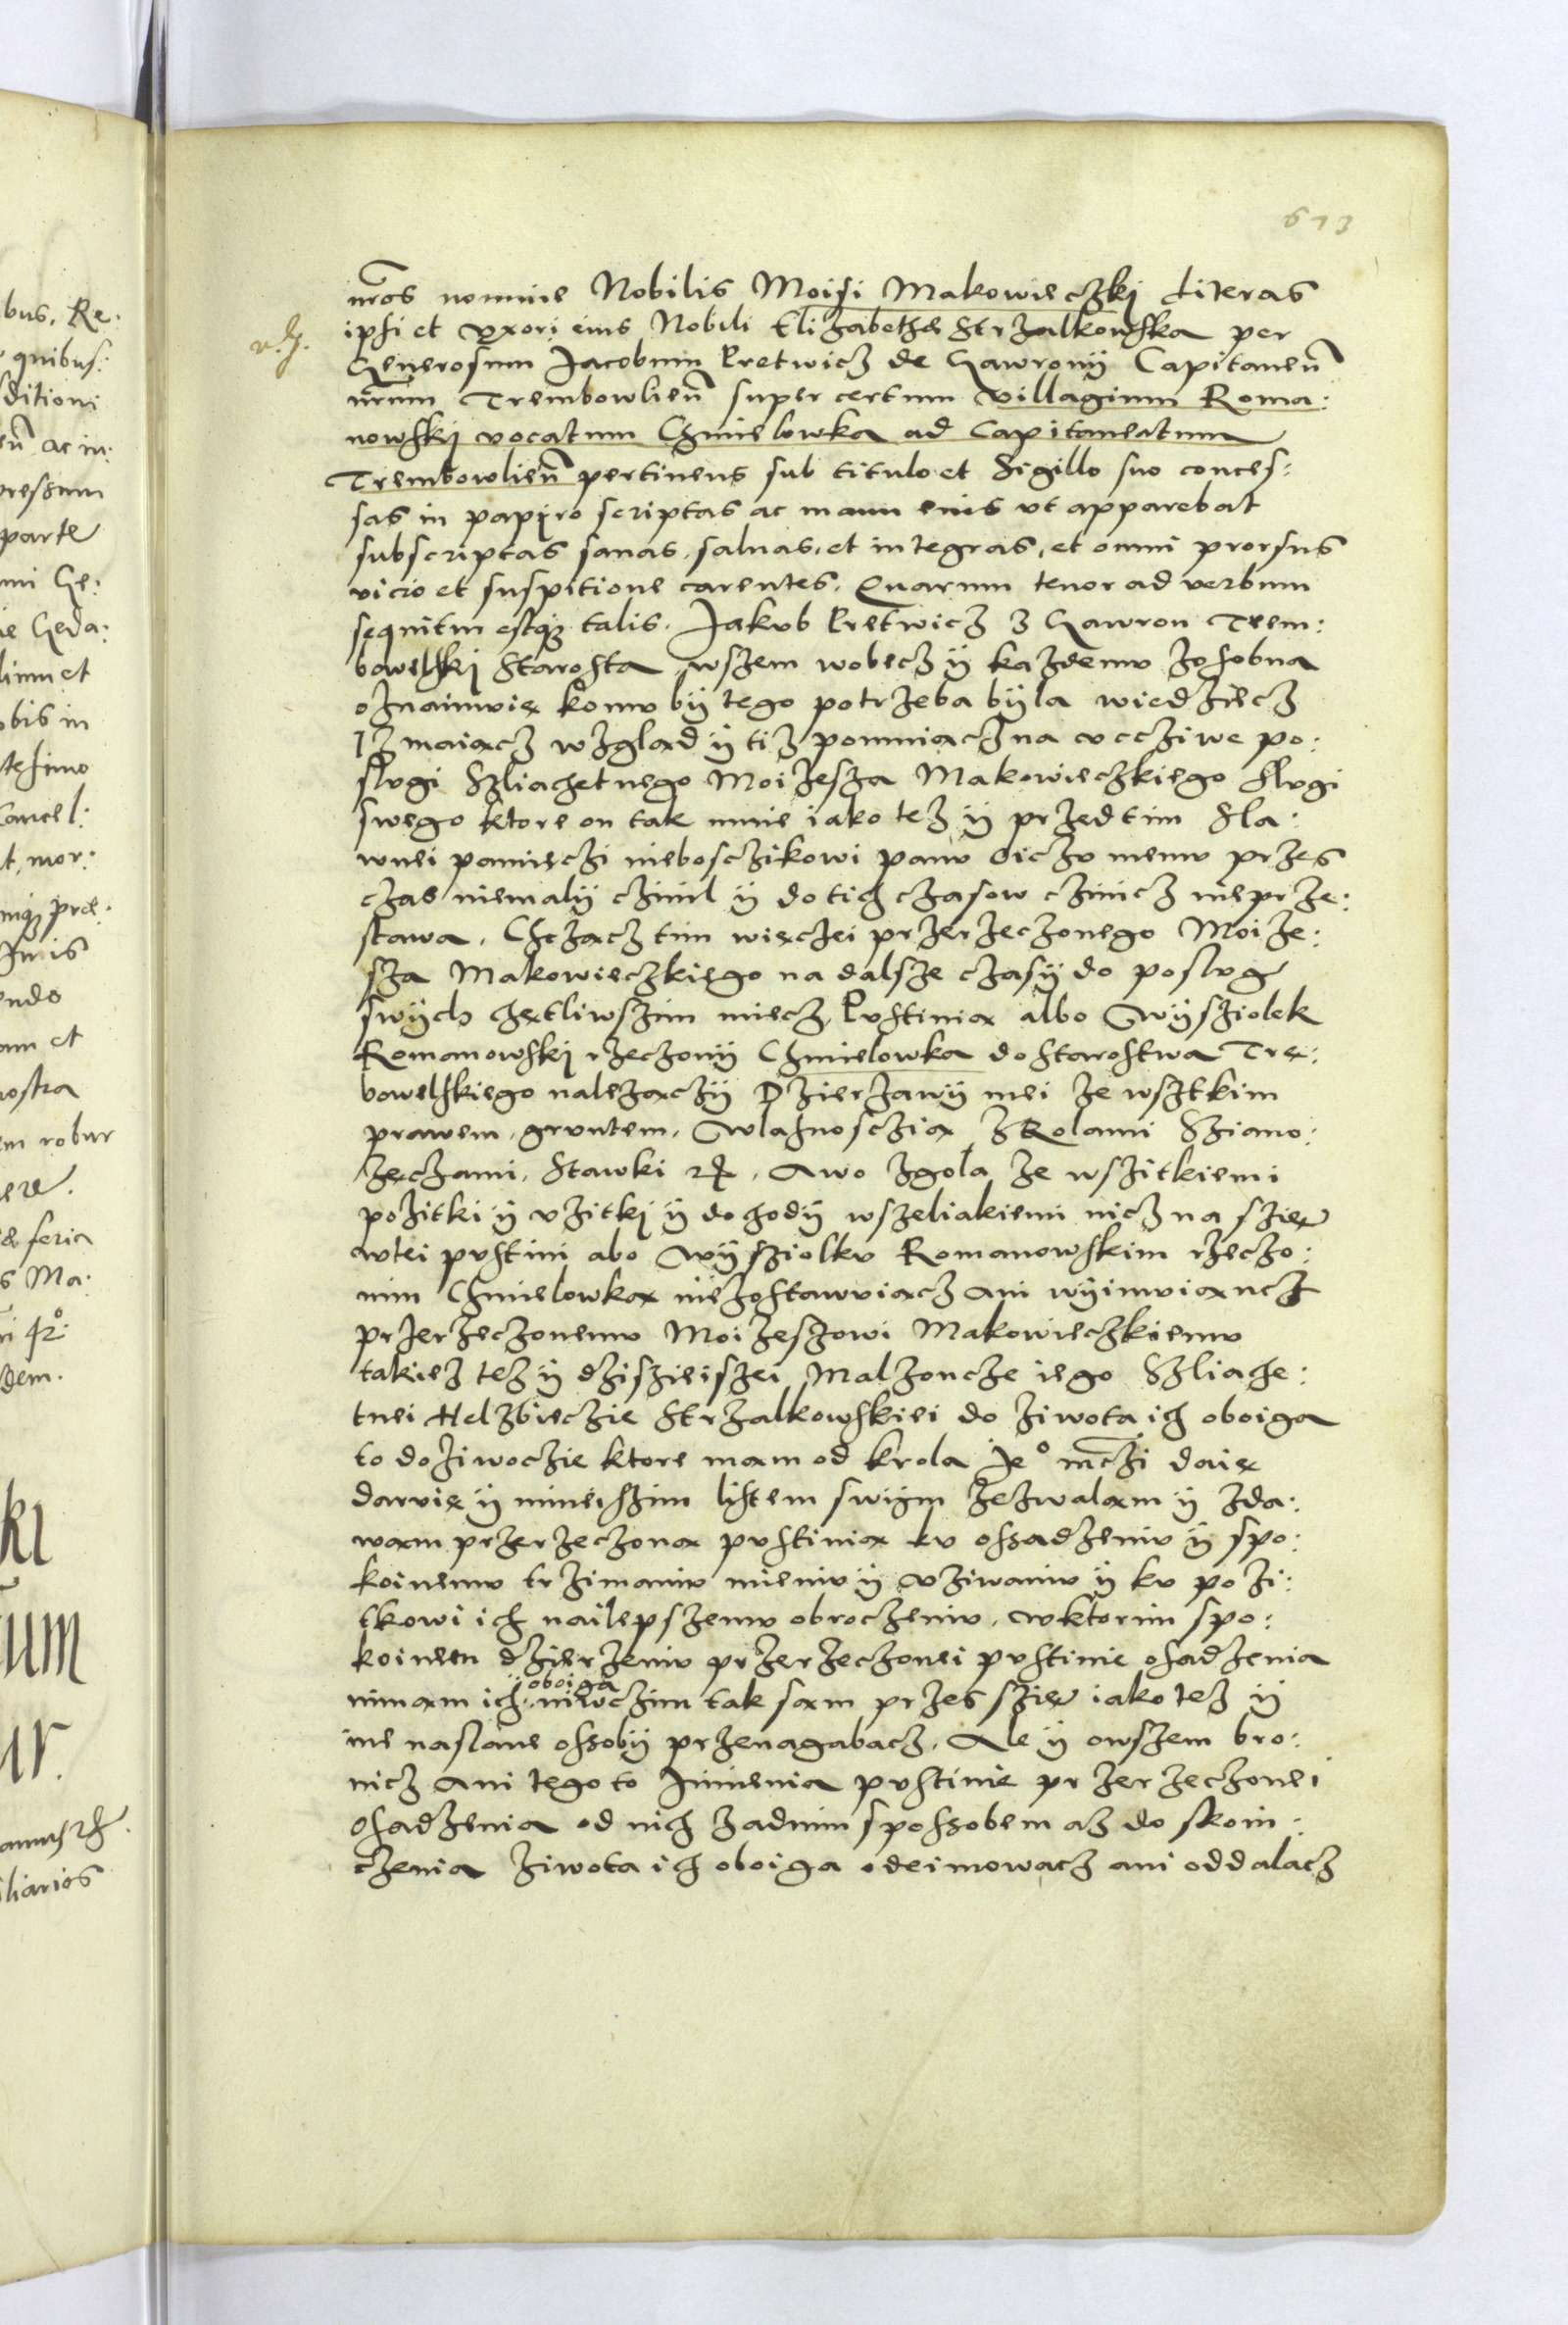 613
nr̃os nomine Nobilis Moisi Makowieczkj Literas
ipsi et Vxori eius Nobili Elizabethæ Strzalkowska per
Generosum Jacobum Pretwicz de Gawronÿ Capitaneũ
nr̃um Trembowlieñ super certum Villagium Roma:
nowskj vocatum Chmielowka ad Capitaneatum
Trembowlieñ pertinens sub titulo et Sigillo suo conces:
sas in papiro scriptas ac manu eius vt apparebat
subscriptas sanas, saluas, et integras, et omni prorsus
vicio et suspitione carentes. Quarum tenor ad verbum
sequitur estqз talis. Jakvb Pretwicz z Gawron Trem:
bowelskj Starosta, wszem wobecz ÿ kazdemv zosobna
oznaimvię komv bÿ tego potrzeba bÿla wiedziecz
Iz maiącz wzgląd ÿ tiz pomniącz na vccziwe po:
slvgi Szliachetnego Moizesza Makowieczkiego slvgi
swego ktore on tak mnie iako tez ÿ przedtim Sla:
wnei pamieczi nieboszczikowi panv oiczv memv przes
czas niemalÿ czinil ÿ do tich czasow czinicz nieprze:
stawa. Chcząncz tim więczei przerzeczonego Moize:
sza Makowieczkiego na dalsze czasÿ do poslvg
swÿch chętliwszim miecz, Pvstinią albo Wÿsziolek
Romanowskj rzeczonÿ Chmielowka do Starostwa Trę:
bowelskiego nalezączÿ Dzierzawÿ mei ze wsztkim
prawem, grvntem, Wlasnosczią zRolami Sziano:
zęczami, Stawki etc. Awo zgola ze wszitkiemi
pozitki ÿ vzitkj ÿ dochodÿ wszeliakiemi nicz na szię
wtei pvstini abo Wÿsziolkv Romanowskim rzeczo:
nim Chmielowką niezostawviącz ani wÿimviąncz
przerzeczonemv Moizeszowi Makowieczkiemv
takiez tez ÿ dzisziejszei Malzoncze iego Szliache:
tnei Helzbieczie Strzalkowskiei do ziwota ich oboiga
to doziwoczie ktore mam od krola Jeº mc̃zi daię
darvię ÿ ninieiszim listem swÿm zezwalam ÿ zda:
wam przerzeczoną pvstinią kv ossadzeniv ÿ spo:
koinemv trzimaniv mieniv ÿ vziwaniv ÿ kv pozi:
tkowi ich nailepszemv obroczeniv, wktorim spo:
koinem dzierzeniv przerzeczonei pvstinie osadzenia
nimam ich oboiga niwczim tak sam przes szię iako tez ÿ
ine naslane ossobÿ przenagabacz. Ale ÿ owszem bro:
nicz ani tego to Jmienia pvstinie przerzeczonei
Osadzenia od nich zadnim spossobem az do skoin:
czenia ziwota ich oboiga odeimowacz ani oddalacz